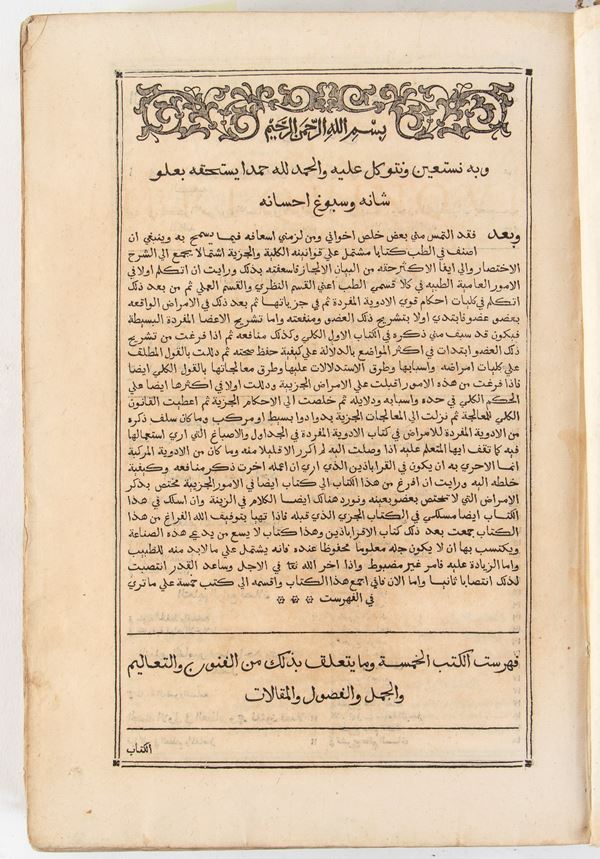 بسم الله الرحمن الرحيم
وبه نستعين ونتوكل عليه والحمد لله حمدا يستحقه بعلو
شانه وسبوغ احسانه
وبعد فقد التمس مني بعض خلص اخواني ومن لزمني اسعافه فيما يسمح به وينبغي ان
اصنف في الطب كتابا مشتمل علي قوانينه الكلية والجزية اشتمالا يجمع الي الشرح
الاختصار والي ايفا الاكثر حقه من البيان الايجاز فاسعفته بذلك ورايت ان اتكلم اولا في
الامور العامية الطبيه في كلا قسمي الطب اعني القسم النظري والقسم العملي ثم من بعد ذلك
اتكلم في كليات احكام قوي الادوية المفردة ثم في جزياتها ثم بعد ذلك في الامراض الواقعه
بعضو عضو فابتدي اولا بتشريح ذلك العضو ومنفعته واما تشريح الاعضا المفردة البسيطة
فيكون قد سبف مني ذكره في الكتاب الاول الكلي وكذلك منافعه ثم اذا فرغت من تشريح
ذلك العضو ابتدات في اكثر المواضع بالدلالة علي كيفية حفظ صحته ثم دللت بالقول المطلف
علي كليات امراضه واسبابها وطرق الاستدلالات عليها وطرق معالجاتها بالقول الكلي ايضا
فاذا فرغت من هذه الامور اقبلت علي الامراض الجزيية ودللت اولا في اكثرها ايضا علي
الحكم الكلي في حده واسبابه ودلايله ثم خلصت الي الاحكام الجزية ثم اعطيت القانون
الكلي للعالجة ثم نزلت الي المعالجات الجزية بدوا دوا بسيط او مركب وما كان سلف ذكره
من الادوية المفردة للامراض في كتاب الادوية المفردة في الجداول والاصباغ التي اري استعمالها
فيه كما تقف ايها المتعلم عليه اذا وصلت اليه لم اكرر الا قليلا منه وما كان من الادوية المركبة
انما الاحري به ان يكون في القراباذين الذي اري ان اعمله اخرت ذكر منافعه وكيفية
خلطه اليه ورايت ان افرغ من هذا الكتاب الي كتاب ايضا في الامور الجزيية مختص بذكر
الامراض التي لا تختص بعضو بعينه ونورد هنالك ايضا الكلام في الزينة وان اسلك في هذا
الكتاب ايضا مسلكي في الكتاب الجزي الذي قبله فاذا تهيا بتوفيف الله الفراغ من هذا
الكتاب جمعت بعد ذلك كتاب الاقراباذين وهذا كتاب لا يسع من يدعي هذه الصناعة
ويكتسب بها ان لا يكون جله معلوما محفوظا عنده فانه يشتمل علي ما لا بد منه للطبيب
واما الزيادة عليه فامر غير مضبوط واذا اخر الله تعا في الاجل وساعد القدر انتصبت
لذلك انتصابا ثانيا واما الان فاني اجمع هذا الكتاب واقسمه الي كتب خمسة علي ما تري
في الفهرست
فهرست الكتب الخمسة وما يتعلف بذلك من الفنون والتعاليم
والجمل والفصول والمقالات
الكتاب